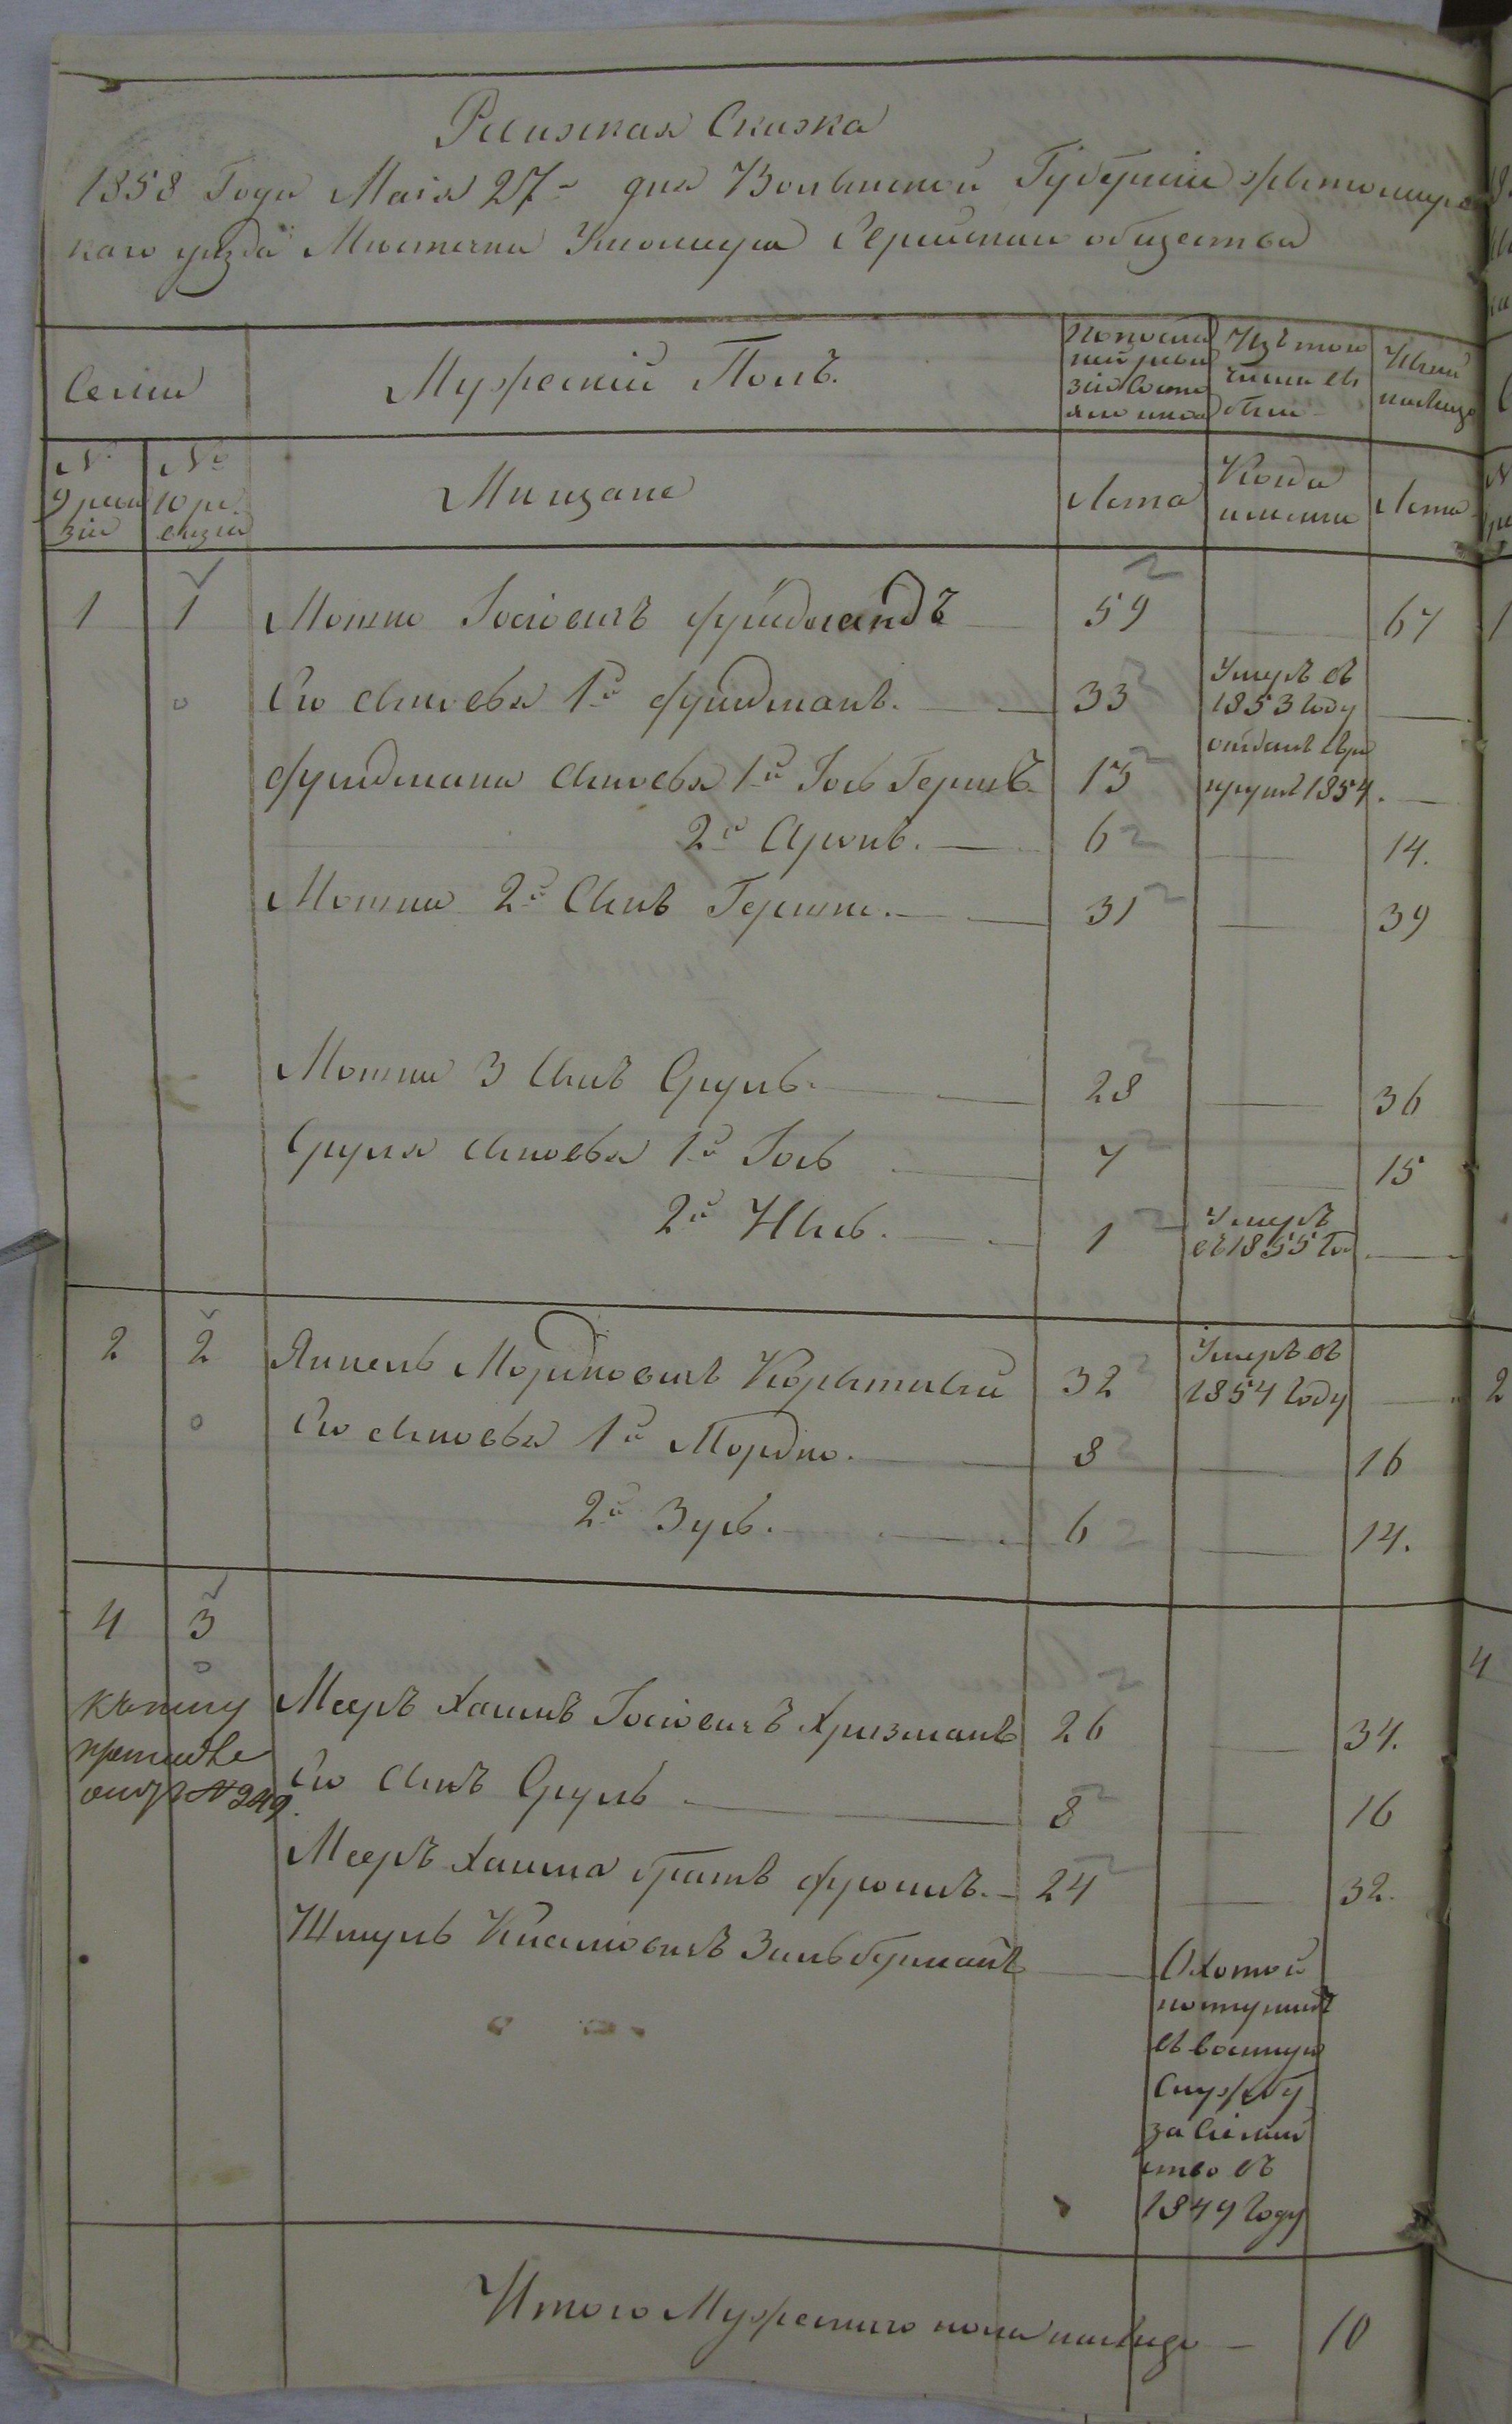 Ревизская Сказка
1858 Года Маія 27го дня Волынской Губерніи Житомирс
каго уѣзда Мѣстечка Ушомира Еврейскаго общества
Семьи
Мужескій Полъ.
По послѣд
ней реви
зіи состо
яло
Изъ того
числа вы
было
Нынѣ
налицо
№
9 реви
зіи
№
10 ре
визіи
Мѣщане
Лѣта
Когда
именно
Лѣта
1 1 Мошко Іосіовичъ Фридмандъ 59 67
Его сыновья 1й Фридманъ. 33 Умеръ въ 1853 году
Фридмана сыновья 1й Іось Гершъ 13 отданъ въ рекруты 1854.
2й Аронъ. 6 14.
Мошка 2й Сынъ Гершко. 31 39
Мошка 3 Сынъ Сруль. 28 36
Сруля сыновья 1й Іось 7 15
2й 1 Умеръ въ 1855 Го
2 2 Янкель Мордковичъ Корытный 32 Умеръ въ 1854 году
Его сыновья 1й Мордко. 8 16
2й Зусь. 6 14.
4 3
Мееръ Хаимъ Іосіовичъ Хризманъ 26 34.
№ 249.
Его Сынъ Сруль 8 16
Мееръ Хаима братъ Фроимъ. 24 32.
Шмуль Зильберманъ
Охотой
поступилъ
въ военную
Службу
за Семей
ство въ
1849 году
Итого Мужескаго пола налицо 10